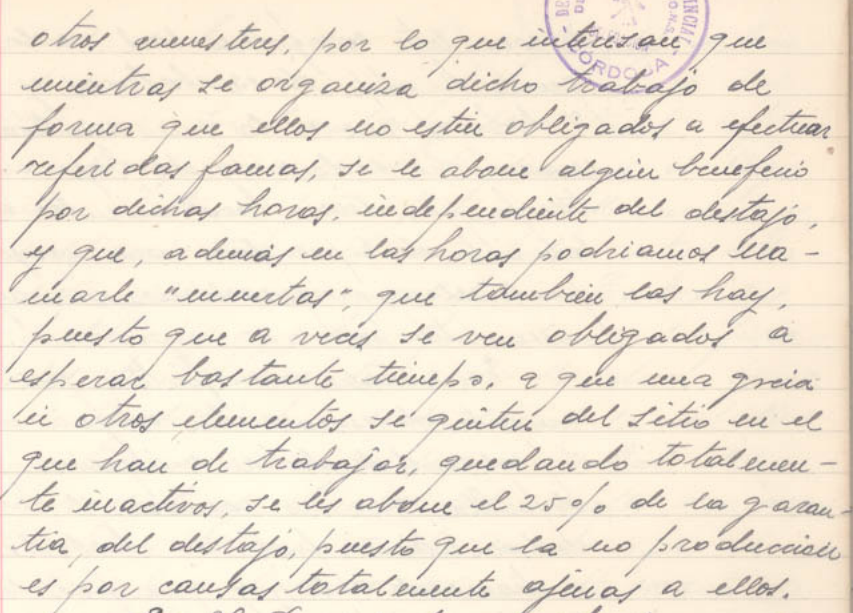 CORDOBA
otros menesteres, por lo que interesan que
mientras se organiza dicho trabajo de
forma que ellos no estén obligados a efectuar
referidas faenas, se le abone algún beneficio
por dichas horas, independiente del destajo,
y que, además en las horas podriamos lla-
marle "muertas", que también las hay,
puesto que a veces se ven obligados a
esperar bastante tiempo, a que una grúa
u otros elementos se quiten del sitio en el
que han de trabajar, quedando totalmen-
te inactivos, se les abone el 25% de la garan-
tía, del destajo, puesto que la no producción
es por causas totalmente ajenas a ellos.